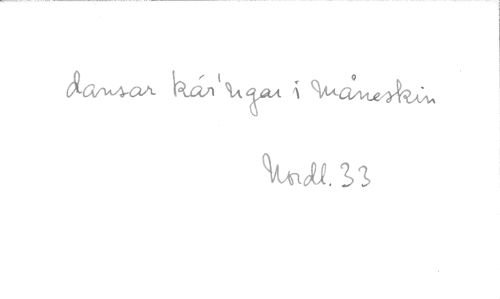 dansar kár'ngar i måneskin
Nordl. 33